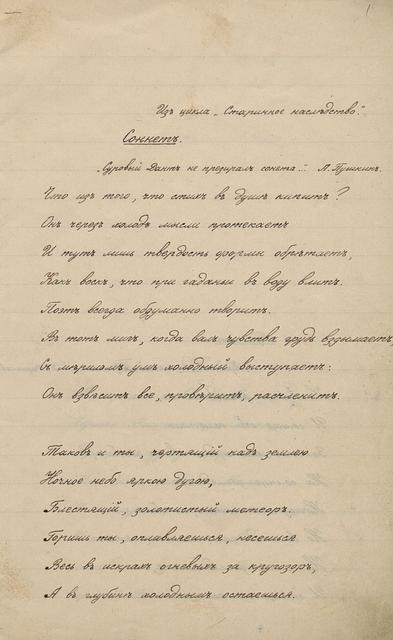 Изъ цикла „Старинное наслѣдство".
Соннетъ.
„Суровый Дантъ не презиралъ сонета..." А. Пушкинъ.
Что изъ того, что стихъ въ душѣ кипитъ?
Онъ черезъ холодъ мысли протекаетъ
И тутъ лишь твердость формы обрѣтаетъ,
Какъ воскъ, что при гаданьи въ воду влитъ.
Поэтъ всегда обдуманно творитъ.
Въ тотъ мигъ, когда валъ чувства грудь вздымаетъ,
Съ мѣриломъ умъ холодный выступаетъ:
Онъ взвѣситъ все, провѣритъ, расчленитъ.
Таковъ и ты, чертящій надъ землею
Ночное небо яркою дугою,
Блестящій, золотистый метеоръ.
Горишь ты, оплавляешься, несешься
Весь въ искрахъ огневыхъ за кругозоръ,
А въ глубинѣ холоднымъ остаешься.